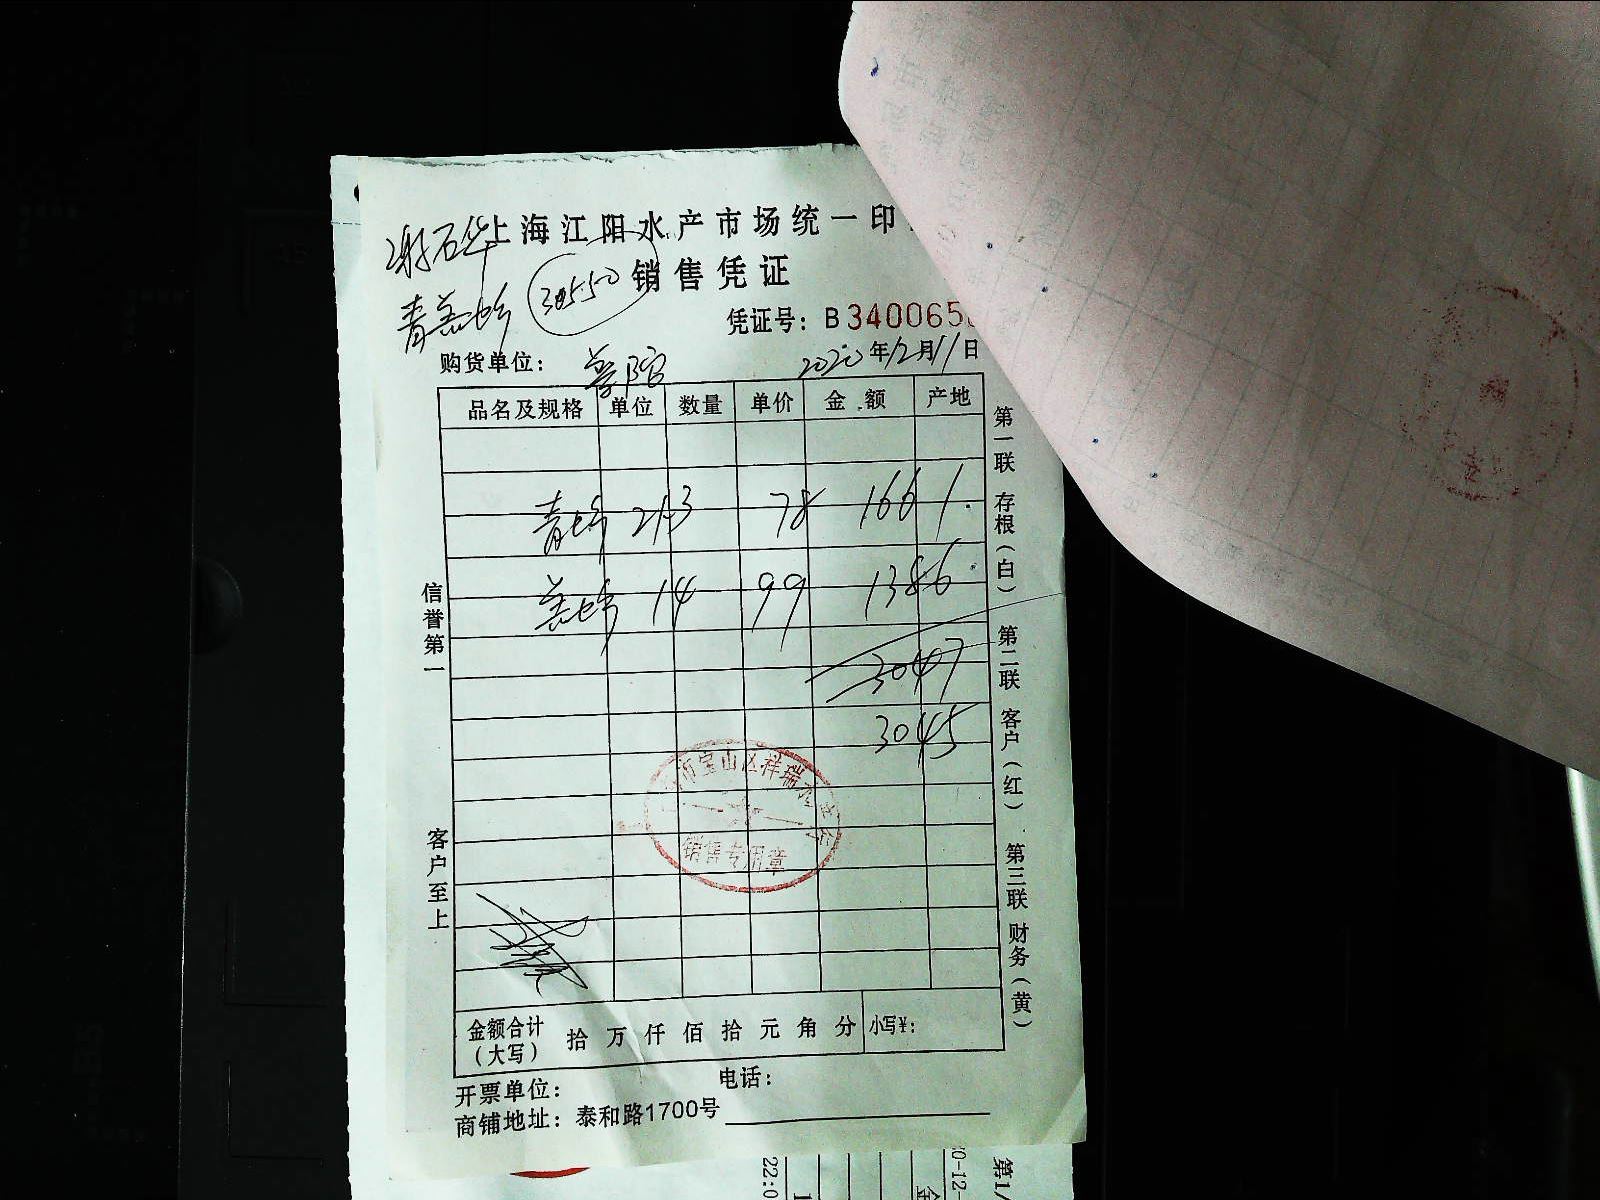 上海江阳水产市场统一印
谢石华
销售凭证
30550
凭证号：B340065
购货单位：
2020年12月11日
品名及规格 单位 数量 单价 金额 产地
21.3 78 1661.
14 99 1386
3047
3045
信誉第一
客户至上
第一联 存根（白） 第二联 客户（红） 第三联 财务（黄）
市宝山区祥瑞
销售专用章
金额合计（大写） 拾 万 仟 佰 拾 元 角 分 小写¥：
开票单位： 电话：
商铺地址：泰和路1700号
22:0
0-12-
第1/